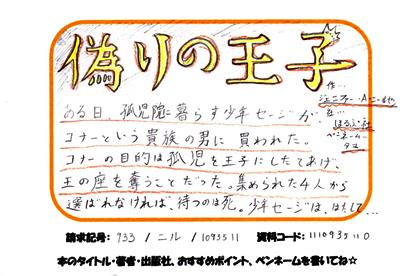 偽りの王子
作…
ジェニファー・A・ニールセン
社…
ほるぷ出版
ペンネーム…
ある日、孤児院に暮らす少年セージが、
コナーという貴族の男に買われた。
コナーの目的は孤児を王子にしたてあげ、
王の座を奪うことだった。集められた4人から
選ばれなければ、待つのは死。少年セージは、はたして…
請求記号: 933 / ニル / 1093511 資料コード: 1110935110
本のタイトル・著者・出版社、おすすめポイント、ペンネームを書いてね☆